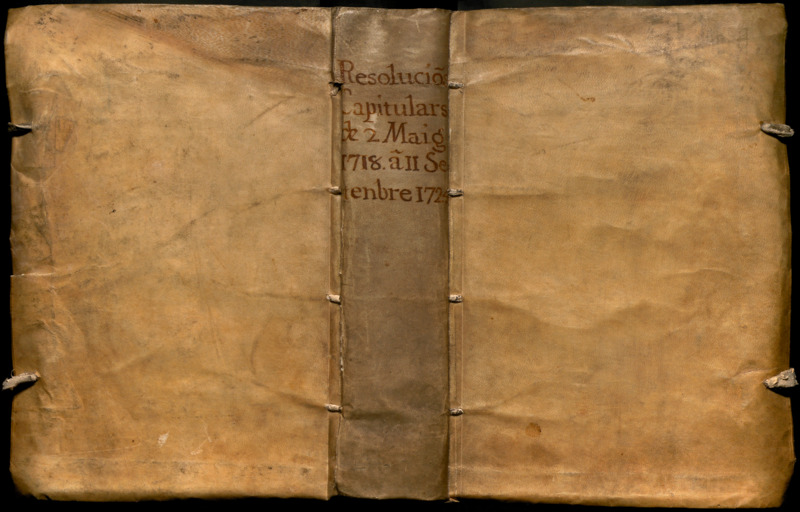 Resoluciõ
Capitulars
de 2 Maig
1718. ã 11 Se
tenbre 172